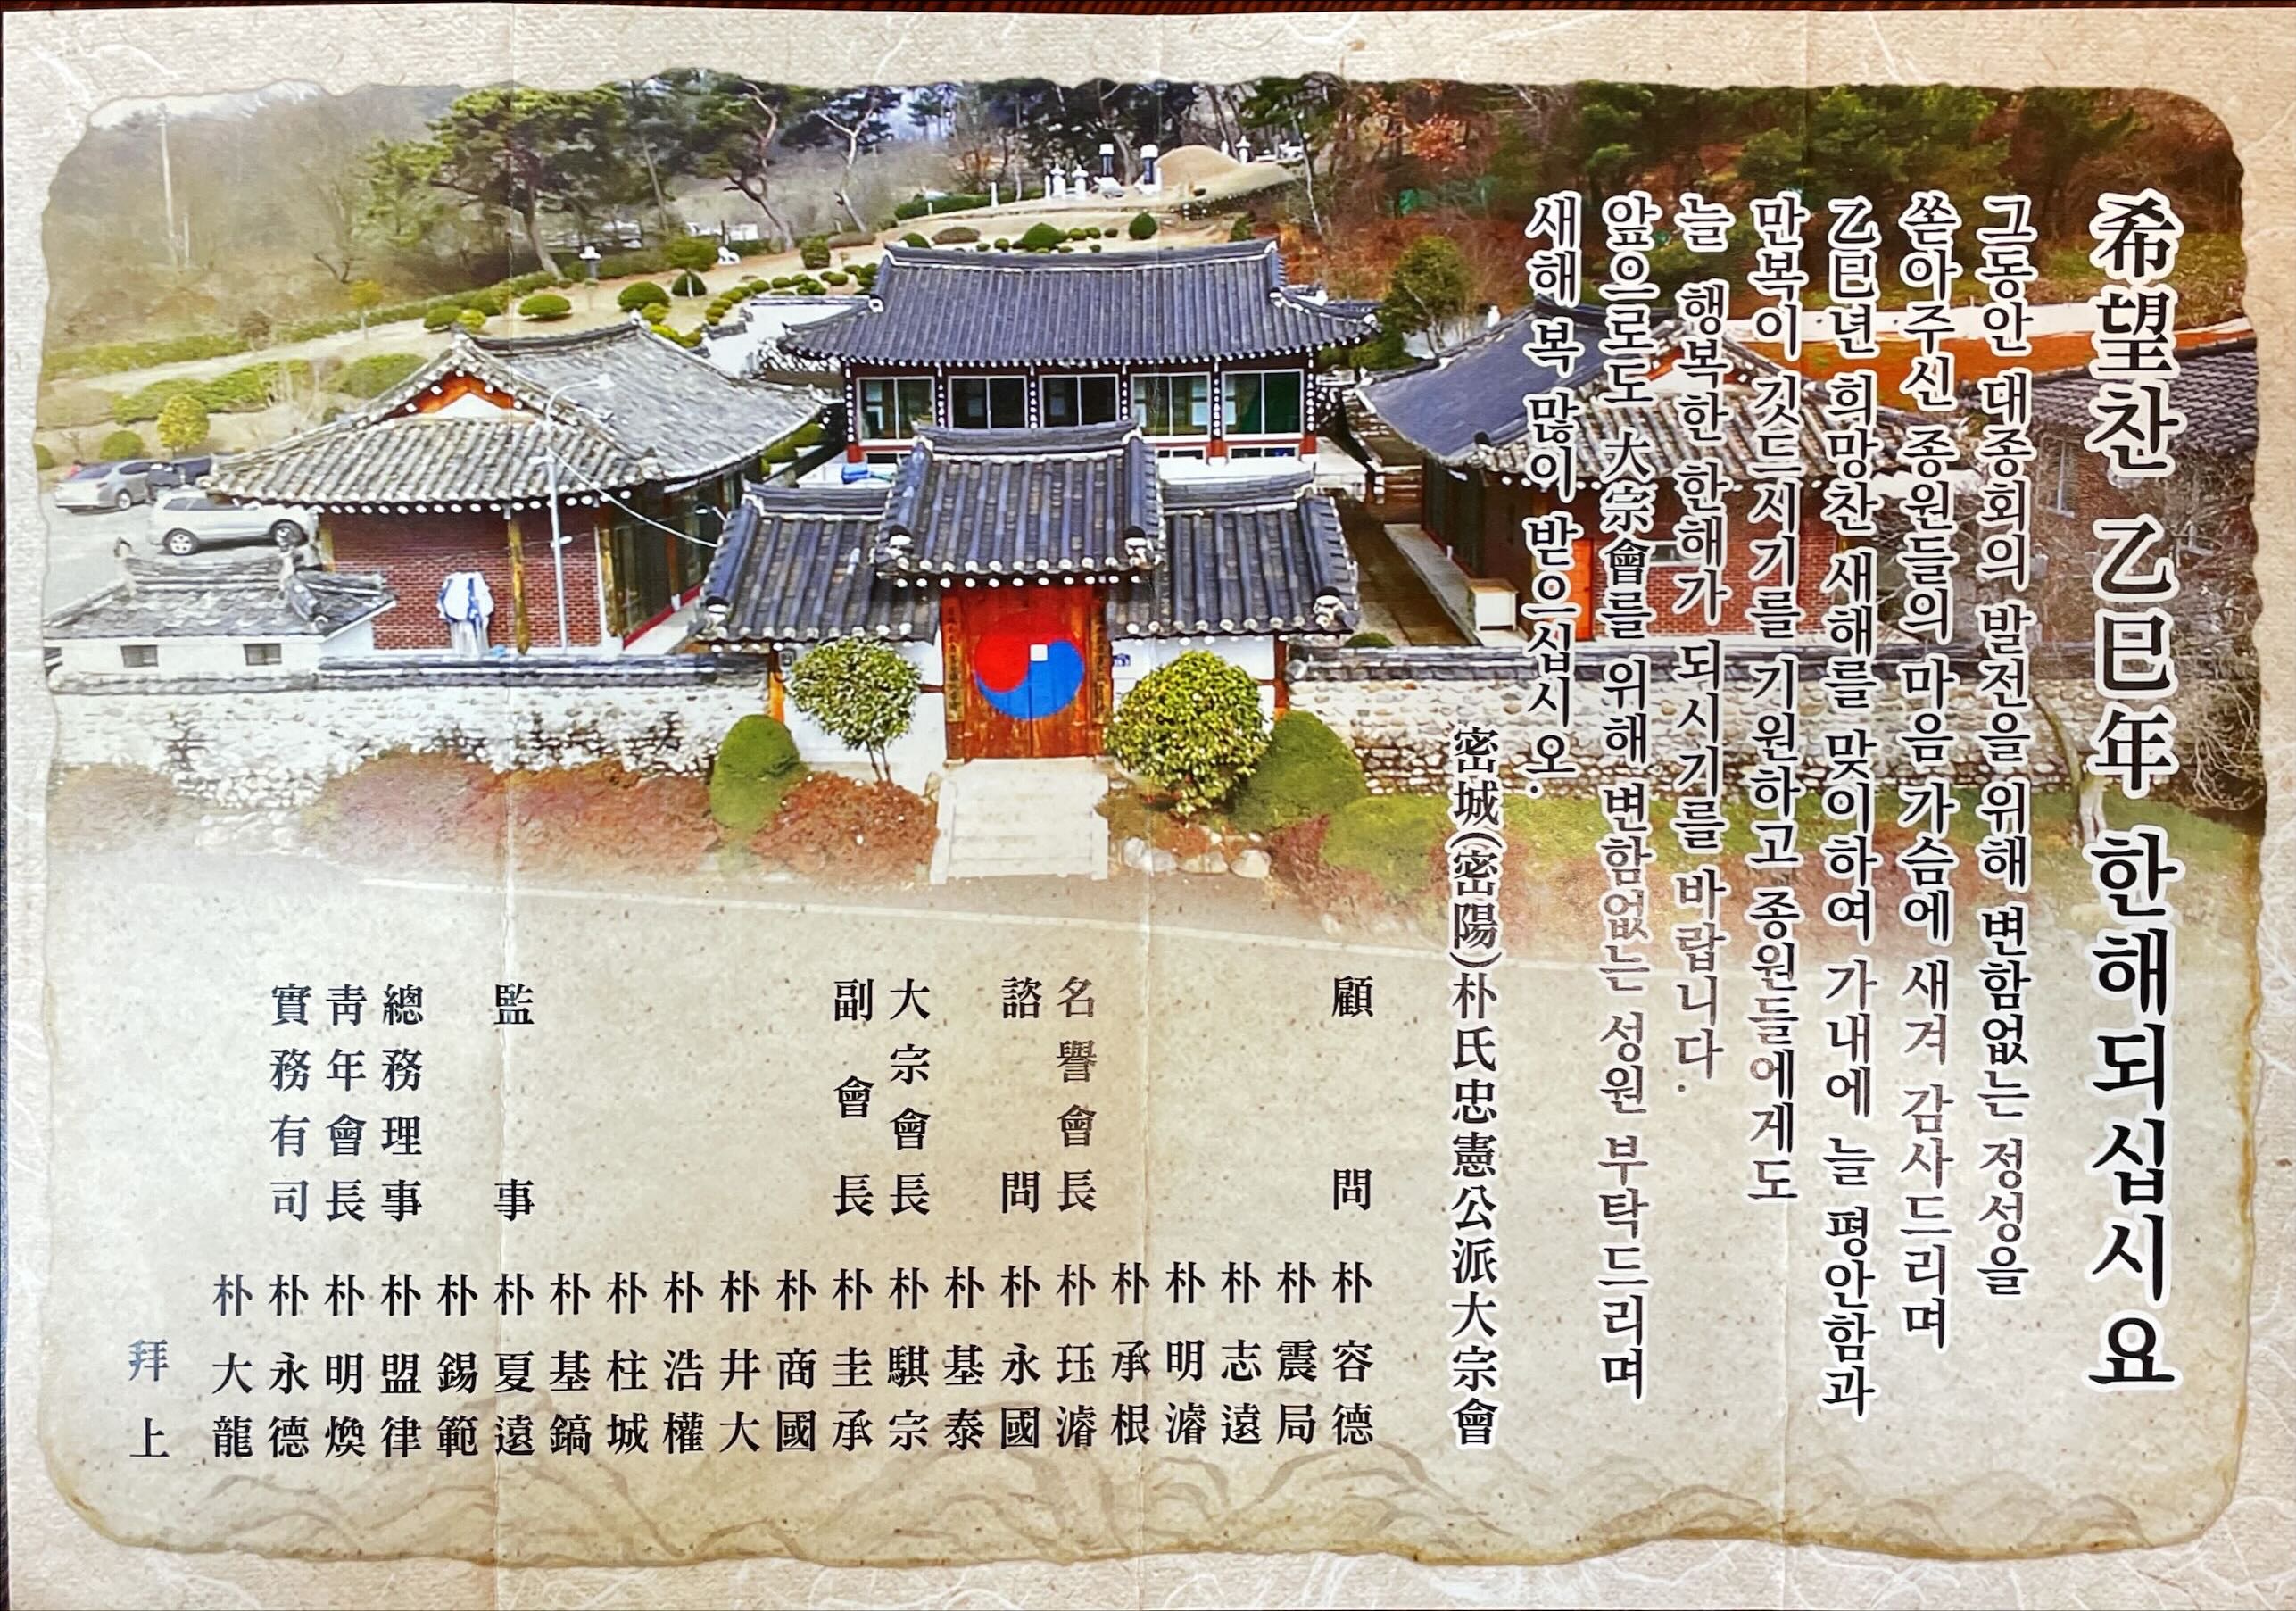 希望찬 乙巳年 한해되십시요
그동안 대종회의 발전을 위해 변함없는 정성을
쏟아주신 종원들의 마음 가슴에 새겨 감사드리며
乙巳년 희망찬 새해를 맞이하여 가내에 늘 평안함과
만복이 깃드시기를 기원하고 종원들에게도
늘 행복한 한해가 되시기를 바랍니다.
앞으로도 大宗會를 위해 변함없는 성원 부탁드리며
새해 복 많이 받으십시오.
密城(密陽)朴氏忠憲公派大宗會
顧問 朴容德
朴震局
朴志遠
朴明濬
朴承根
名譽會長 朴珏濬
諮問 朴永國
朴基泰
大宗會長 朴騏宗
副會長 朴圭承
朴商國
朴井大
朴浩權
朴柱城
朴基鎬
監事 朴夏遠
朴錫範
總務理事 朴盟律
靑年會長 朴明煥
實務有司 朴永德
朴大龍
拜上